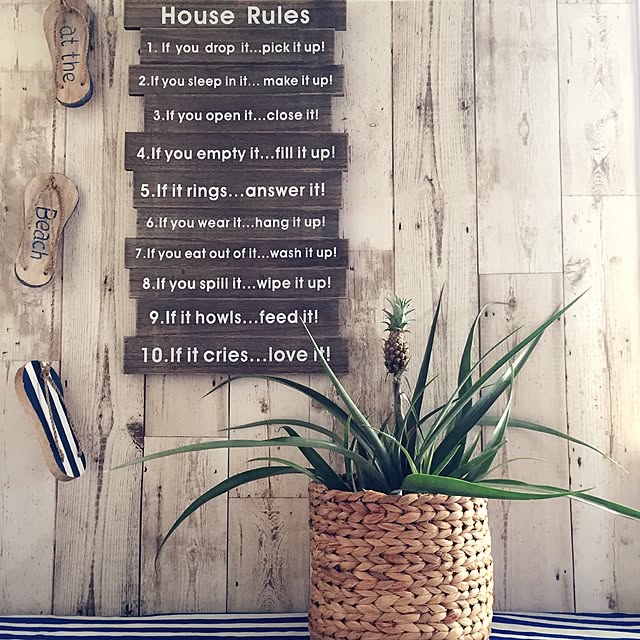 House Rules
1. If you drop it...pick it up!
2.If you sleep in it... make it up!
3.If you open it...close it!
4.If you empty it...fill it up!
5.If it rings...answer it!
6.If you wear it...hang it up!
7.If you eat out of it...wash it up!
8.If you spill it...wipe it up!
9.If it howls...feed it!
10.If it cries...love it!
at the
Beach